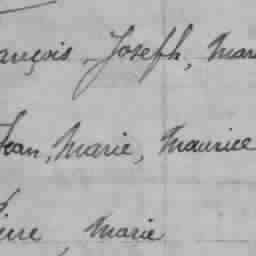 ançois, Joseph, Mar
Jean, Marie, Maurice
erre, Marie